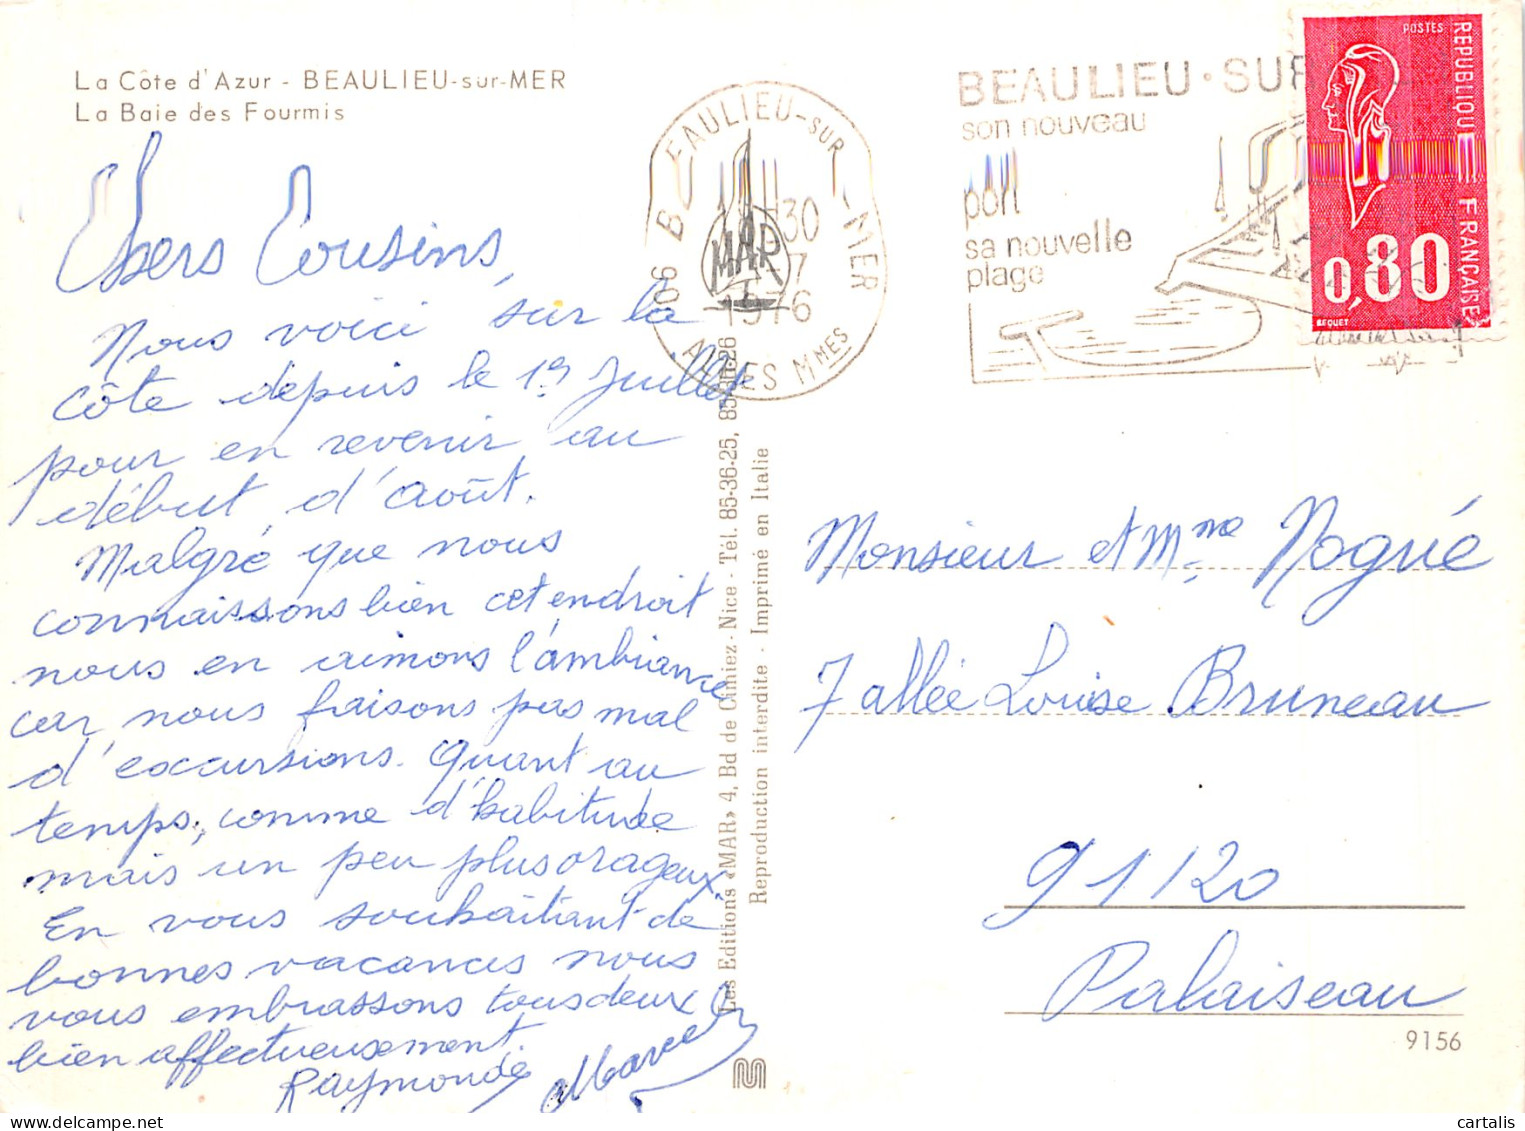 La Côte d'Azur - BEAULIEU-sur-MER
La Baie des Fourmis
Chers Cousins,
Nous voici sur la
côte depuis le 1er Juillet
pour en revenir au
début d'août.
Malgré que nous
connaissons bien cet endroit
nous en aimons l'ambiance
car nous faisons pas mal
d'excursions. Quant au
temps, comme d'habitude
mais un peu plus orageux.
En vous souhaitant de
bonnes vacances nous
vous embrassons tous deux
bien affectueusement.
Raymonde Marcel
BEAULIEU-SUR-MER
30
7
1976
06 ALPES MMES
MAR
Les Editions «MAR» 4, Bd de Cimiez - Nice - Tél. 85-36-25, 85-36-26
Reproduction interdite - Imprimé en Italie
BEAULIEU · SUR
son nouveau
port
sa nouvelle
plage
POSTES
REPUBLIQUE FRANÇAISE
0,80
BEQUET
Monsieur et Mme Nogué
7 allée Louise Bruneau
91120
Palaiseau
9156
cartalis